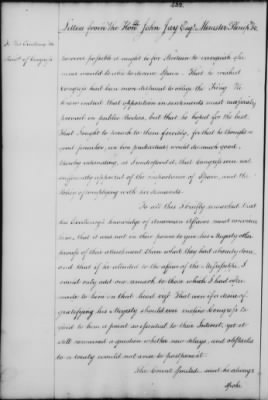 Letters from The Honble John Jay Esqr. Minister Plenipo. &c
To His Excellency the
President of Congress
however possible it ought to be for Nations to vanquish
was would be able to deceive Spain. That he wished
Congress had been more disposed to oblige the King. He
knew indeed that opposition in sentiments must
prevail on public Bodies, but that he hoped for the best.
That I ought to to them forcibly, for that he thought a
good preacher, as two particulars would do much good,
thereby intimating, as I understood it, that Congress were not
sufficiently apprized of the importance of Spain, and the
of complying with her demands.
To all this I briefly remarked that
his Excellency's knowledge of American Affairs must convince
him, that it was not in their power to give his Majesty other
proofs of their attachment than what they had already done,
and that if he alluded to the affair of the Mississippi I
could only add one remark to those which I had often
made to him on that head viz. That even if a desire of
gratifying his Majesty should ever incline Congress to
yield to him a point so essential to their Interest, yet it
still remained a question whether new delays, and obstacles
to a treaty would not arise to postpone it.
The Count smiled said he always
spoke